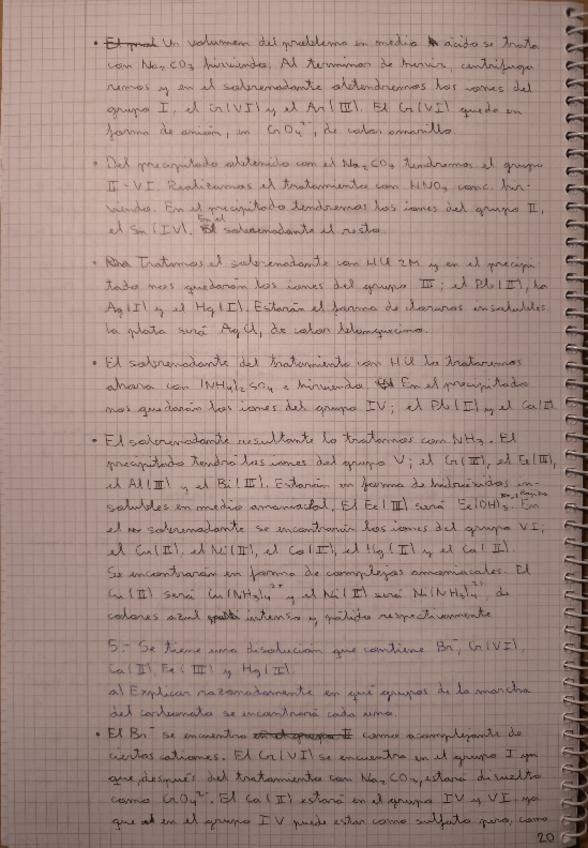 • Un volumen del problema en medio ácido se trata
con Na₂CO₃ hirviendo. Al terminar de hervir, centrifuga
remos y en el sobrenadante obtendremos los iones del
grupo I, el Cr(VI) y el As(III). El Cr(VI) queda en
forma de anión, en CrO₄²⁻, de color amarillo.
• Del precipitado obtenido con el Na₂CO₃ tendremos el grupo
II-VI. Realizamos el tratamiento con HNO₃ conc. hir-
viendo. En el precipitado tendremos los iones del grupo II,
el Sn(IV). En el sobrenadante el resto.
• Tratamos el sobrenadante con HCl 2M y en el precipi
tado nos quedarán los iones del grupo III; el Pb(II), la
Ag(I) y el Hg(I). Estarán el forma de cloruros insolubles.
la plata será AgCl, de color blanquecino.
• El sobrenadante del tratamiento con HCl lo trataremos
ahora con (NH₄)₂SO₄ e hirviendo. En el precipitado
nos quedarán los iones del grupo IV; el Pb(II) y el Ca(II)
• El sobrenadante resultante lo tratamos con NH₃. El
precipitado tendrá los iones del grupo V; el Cr(III), el Fe(III),
el Al(III) y el Bi(III). Estarán en forma de hidróxidos in-
solubles en medio amoniacal. El Fe(III) será Fe(OH)₃. En
el sobrenadante se encontrarán los iones del grupo VI;
el Cu(II), el Ni(II), el Co(II), el Hg(II) y el Ca(II).
Se encontrarán en forma de complejos amoniacales. El
Cu(II) será Cu(NH₃)₄²⁺ y el Ni(II) será Ni(NH₃)₄²⁺, de
colores azul intenso y pálido respectivamente
5.- Se tiene una disolución que contiene Br⁻, Cr(VI),
Ca(II), Fe(III) y Hg(II).
a) Explicar razonadamente en qué grupos de la marcha
del carbonato se encontrará cada uno.
• El Br⁻ se encuentra como acomplejante de
ciertos cationes. El Cr(VI) se encuentra en el grupo I ya
que, después del tratamiento con Na₂CO₃, estará disuelto
como CrO₄²⁻. El Ca(II) estará en el grupo IV y VI ya
que en el grupo IV puede estar como sulfato pero, como
20